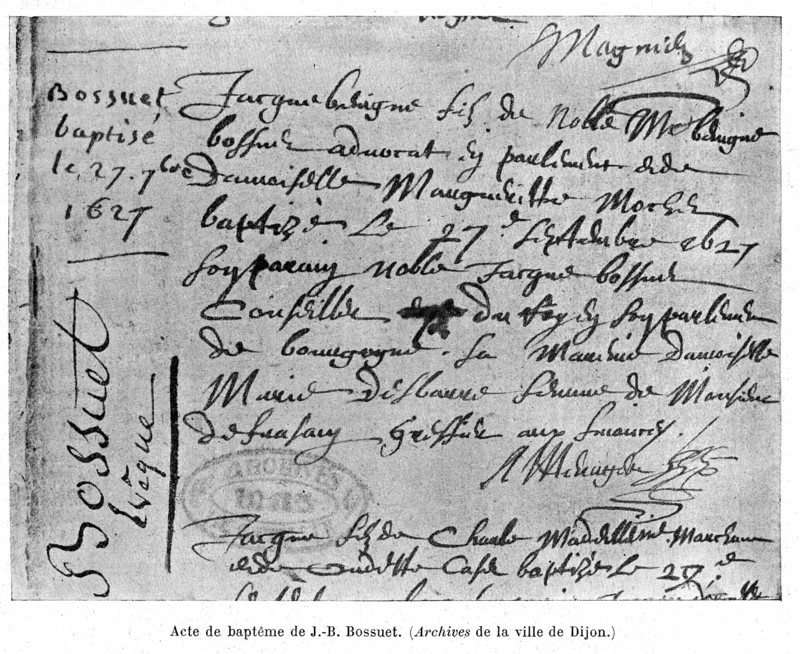 Magnien
Bossuet
baptisé
le 27. 7bre
1627
Bossuet
Evêque
Jacque benigne filz de noble Me benigne
bossuet advocat en parlement et de
Damoiselle Margueritte Mochet
baptizé Le 27e septembre 1627
son parain noble Jacque bossuet
Conseiller du Roy en son parlement
de bourgogne. La Mareine damoiselle
Marie desbarre femme de Monsieur
greffier aux finances.
ARCHIVES
Jacque filz de Charle Marchant
et de Oudette baptizé Le 27e
Acte de baptême de J.-B. Bossuet. (Archives de la ville de Dijon.)